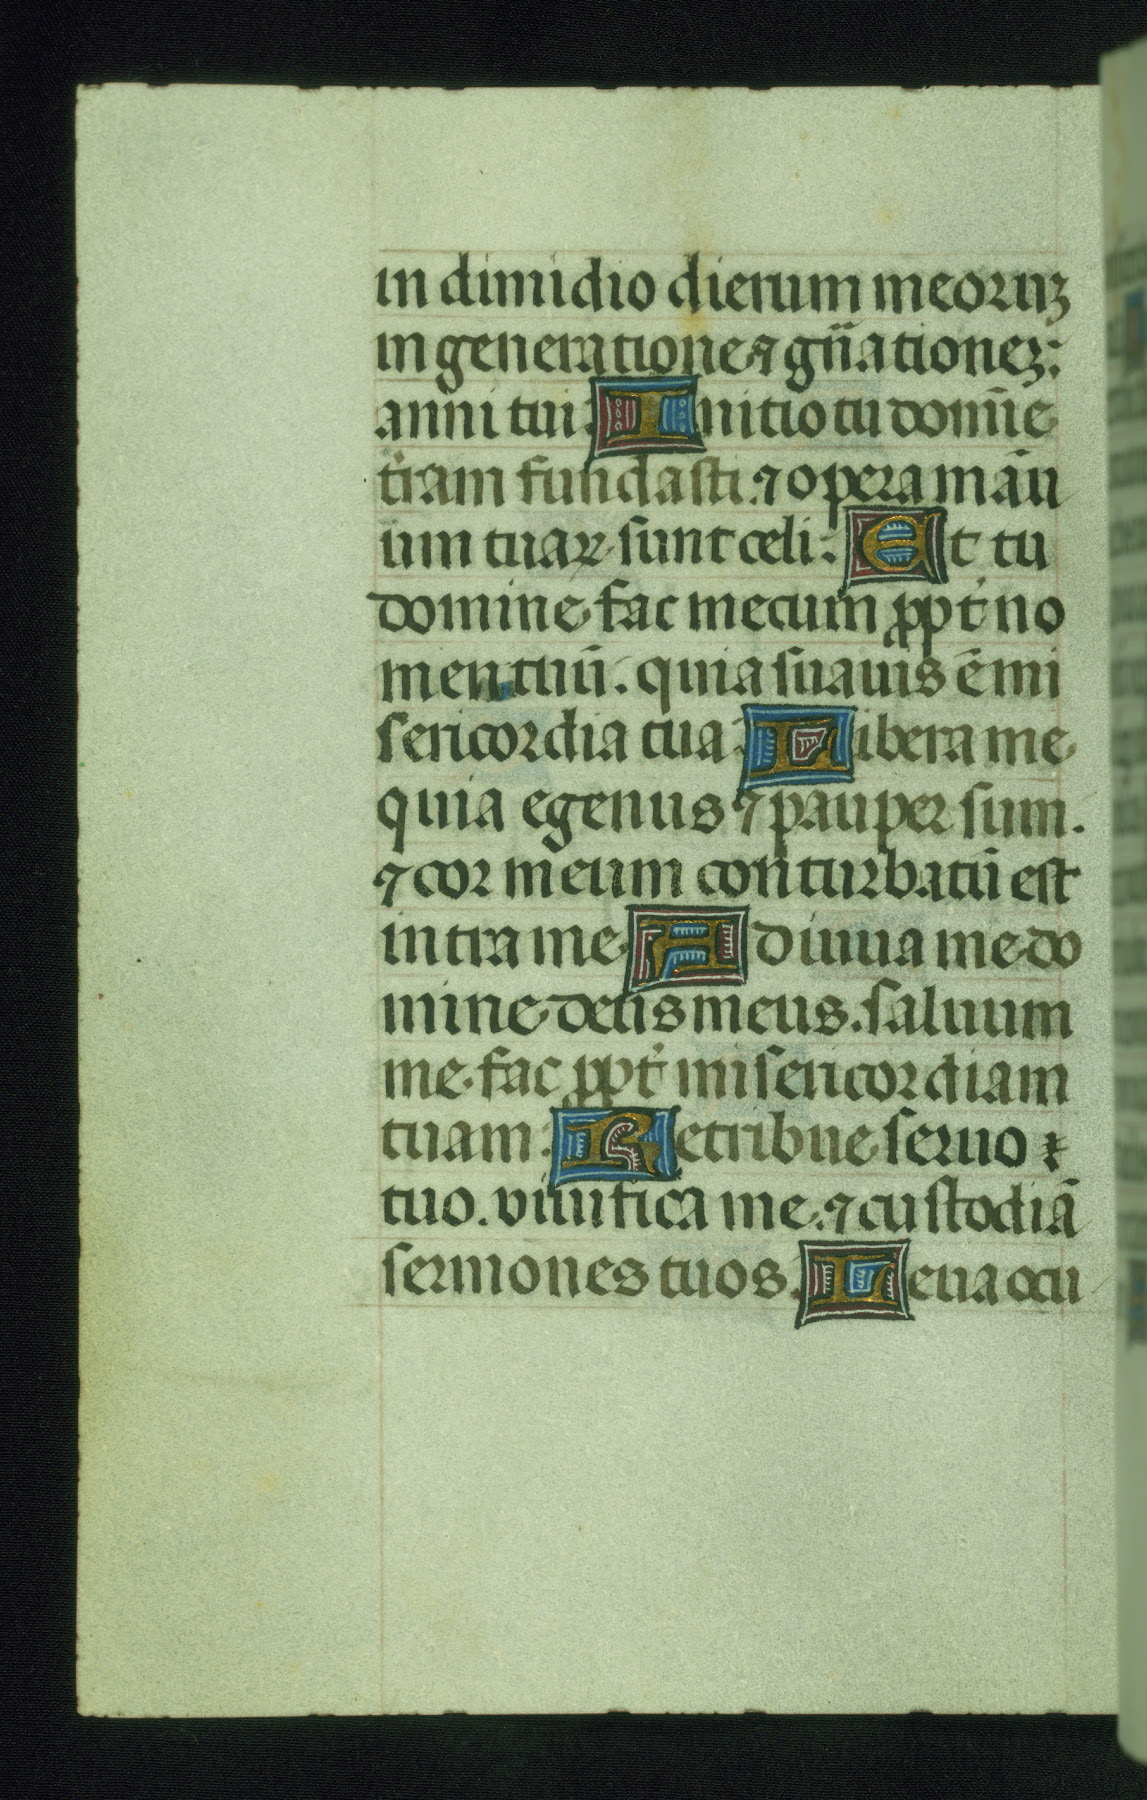 in dimidio dierum meoruꝫ
in generatione ⁊ gn̄ationeꝫ:
anni tui: Initio tu domīe
t̾ram fundasti. ⁊ opera mānu
um tuaꝝ sunt celi: Et tu
domine fac mecum ꝓpt̾ no
men tuū. quia suauis ē mi
sericordia tua: Libera me
quia egenus ⁊ pauper sum.
⁊ cor meum conturbatū est
intra me. Adiuua me do
mine deus meus. saluum
me fac ꝓpt̾ misericordiam
tuam: Retribue seruo
tuo. viuifica me. ⁊ custodiā
sermones tuos. Leua ocu